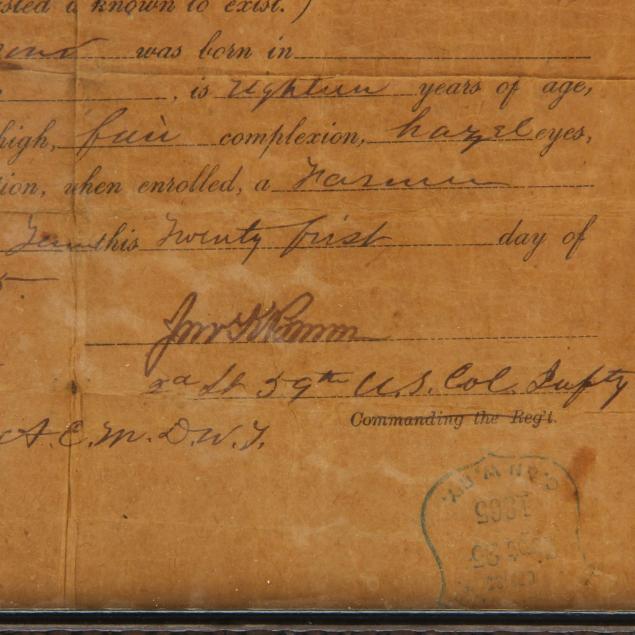 is known to exist.)
was born in
, is eighteen years of age,
high, fair complexion, hazel eyes,
tion, when enrolled, a Farmer
Tenn this Twenty first day of
2d Lt 59th U.S. Col. Infty
Commanding the Reg't.
A.C.M.D.W.T.
C. & N. W. R'Y.
1865